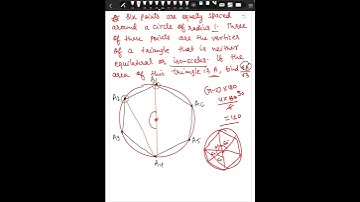 Six points are equity spaced
around a circle of radius 1. Three
of these points are the vertices
of a triangle that is neither
equilateral or iso-sceles. If the
area of this triangle is A, find
A1
A2
A6
A3
A5
A4
(n-2)×180
=120